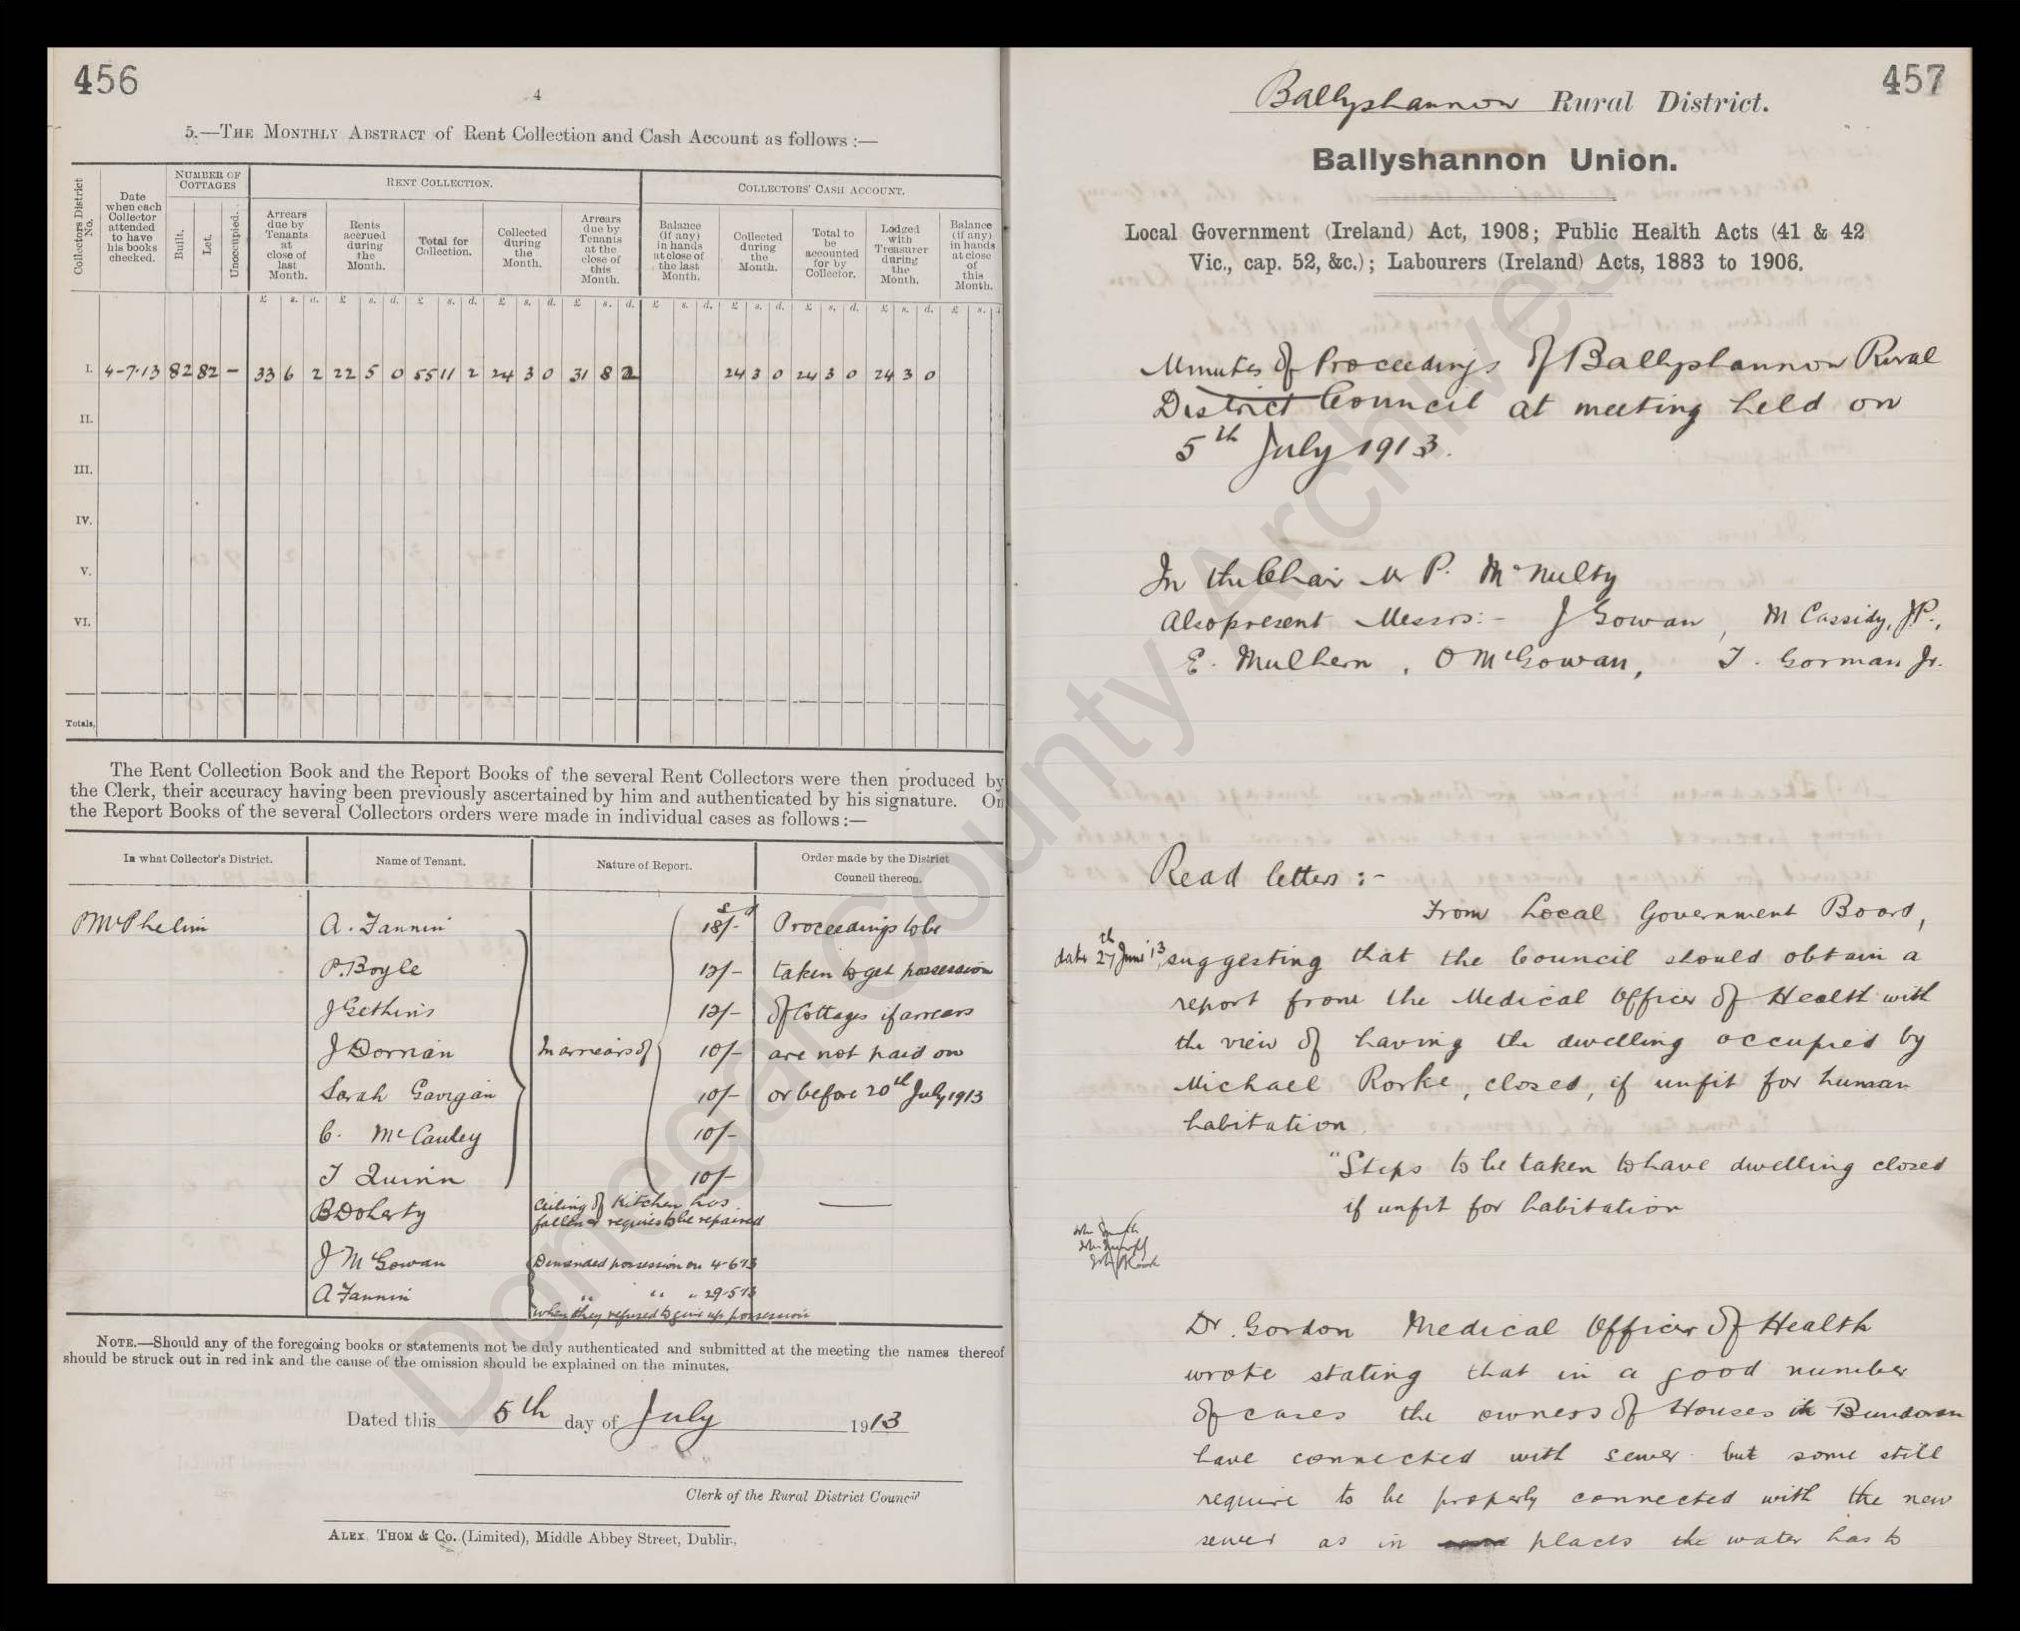 456
4
5.—THE MONTHLY ABSTRACT of Rent Collection and Cash Account as follows :—
Collectors District No.
Date when each Collector attended to have his books checked.
NUMBER OF COTTAGES
Built.
Let.
Unoccupied.
RENT COLLECTION.
Arrears due by Tenants at close of last Month.
Rents accrued during the Month.
Total for Collection.
Collected during the Month.
Arrears due by Tenants at the close of this Month.
COLLECTORS' CASH ACCOUNT.
Balance (if any) in hands at close of the last Month.
Collected during the Month.
Total to be accounted for by Collector.
Lodged with Treasurer during the Month.
Balance (if any) in hands at close of this Month.
£ s. d. £ s. d. £ s. d. £ s. d. £ s. d. £ s. d. £ s. d. £ s. d. £ s. d. £ s.
I. 4-7-13 82 82 – 33 6 2 22 5 0 55 11 2 24 3 0 31 8 2 24 3 0 24 3 0 24 3 0
II.
III.
IV.
V.
VI.
Totals,
The Rent Collection Book and the Report Books of the several Rent Collectors were then produced by
the Clerk, their accuracy having been previously ascertained by him and authenticated by his signature. On
the Report Books of the several Collectors orders were made in individual cases as follows :—
In what Collector's District. Name of Tenant. Nature of Report. Order made by the District Council thereon.
P McPhelim A. Fannin s d 18/- Proceedings to be
P. Boyle 12/- taken to get possession
J Gethins 12/- of Cottages if arrears
J Dornan In arrears of 10/- are not paid on
Sarah Gavigan 10/- or before 20th July 1913
C. McCauley 10/-
T Quinn 10/-
B Doherty Ceiling of Kitchen has
fallen & requires to be repaired
J McGowan Demanded possession on 4-6-13
A Fannin " " " 29-5-13
when they refused to give up possession
NOTE.—Should any of the foregoing books or statements not be duly authenticated and submitted at the meeting the names thereof
should be struck out in red ink and the cause of the omission should be explained on the minutes.
Dated this 5th day of July 1913
Clerk of the Rural District Council
ALEX. THOM & Co. (Limited), Middle Abbey Street, Dublin.
457
Ballyshannon Rural District.
Ballyshannon Union.
Local Government (Ireland) Act, 1908; Public Health Acts (41 & 42
Vic., cap. 52, &c.); Labourers (Ireland) Acts, 1883 to 1906.
Minutes of Proceedings of Ballyshannon Rural
District Council at meeting held on
5th July 1913.
In the Chair Mr P. McNulty
Also present Messrs:- J Gowan, M Cassidy, J.P.,
E. Mulhern, O McGowan, T. Gorman Jr.
Read letters :-
From Local Government Board,
date 27th June '13, suggesting that the Council should obtain a
report from the Medical Officer of Health with
the view of having the dwelling occupied by
Michael Rorke, closed, if unfit for human
habitation.
"Steps to be taken to have dwelling closed
if unfit for habitation
Dr. Gordon Medical Officer of Health
wrote stating that in a good number
of cases the owners of Houses in Bundoran
have connected with sewer but some still
require to be properly connected with the new
sewer as in places the water has to
Donegal County Archives